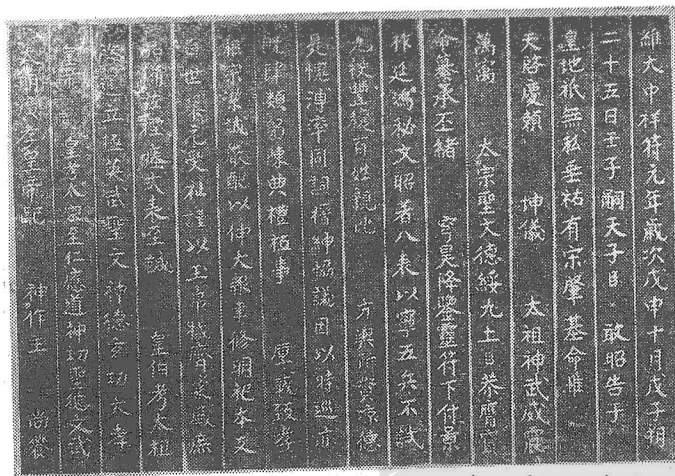 維大中祥符元年歲次戊申十月戊子朔
二十五日壬子嗣天子臣 敢昭告于
皇地祇無私垂祐有宋肇基命惟
天啓慶賴 坤儀 太祖神武威震
萬寓 太宗聖文德綏九土臣恭膺寶
命纂承丕緒 穹昊降鑒靈符下付景
祚延鴻秘文昭著八表以寧五兵不試
九穀豐穰百姓親比 方輿所資涼德
是愧溥率同詞搢紳協議因以時巡亦
既肆類躬陳典禮祗事 厚載致孝
祖宗潔誠嚴配以伸大報聿修明祀本支
百世黎元受祉謹以玉帛犧齊粢盛庶
品備茲禋瘞式表至誠 皇伯考太祖
啓運立極英武聖文神德玄功大孝
皇帝 皇考太宗至仁應道神功聖德文武
大明廣孝皇帝配 神作主 尚饗